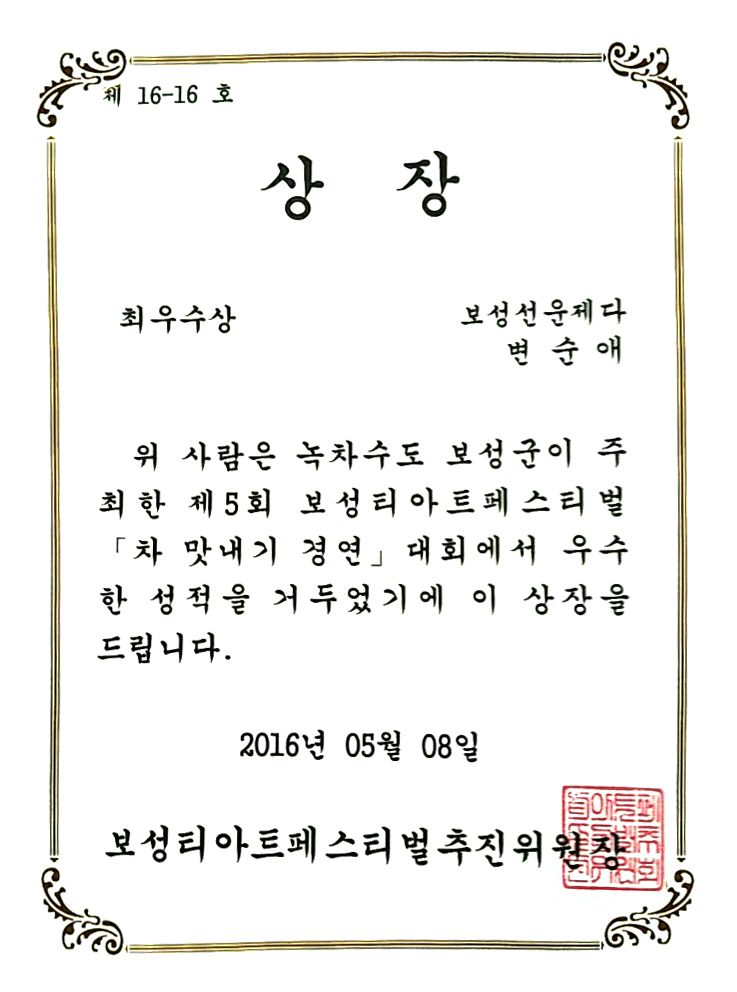 제 16-16 호
상 장
최우수상
보성선운제다
변 순 애
위 사람은 녹차수도 보성군이 주
최한 제5회 보성티아트페스티벌
「차 맛내기 경연」대회에서 우수
한 성적을 거두었기에 이 상장을
드립니다.
2016년 05월 08일
보성티아트페스티벌추진위원장